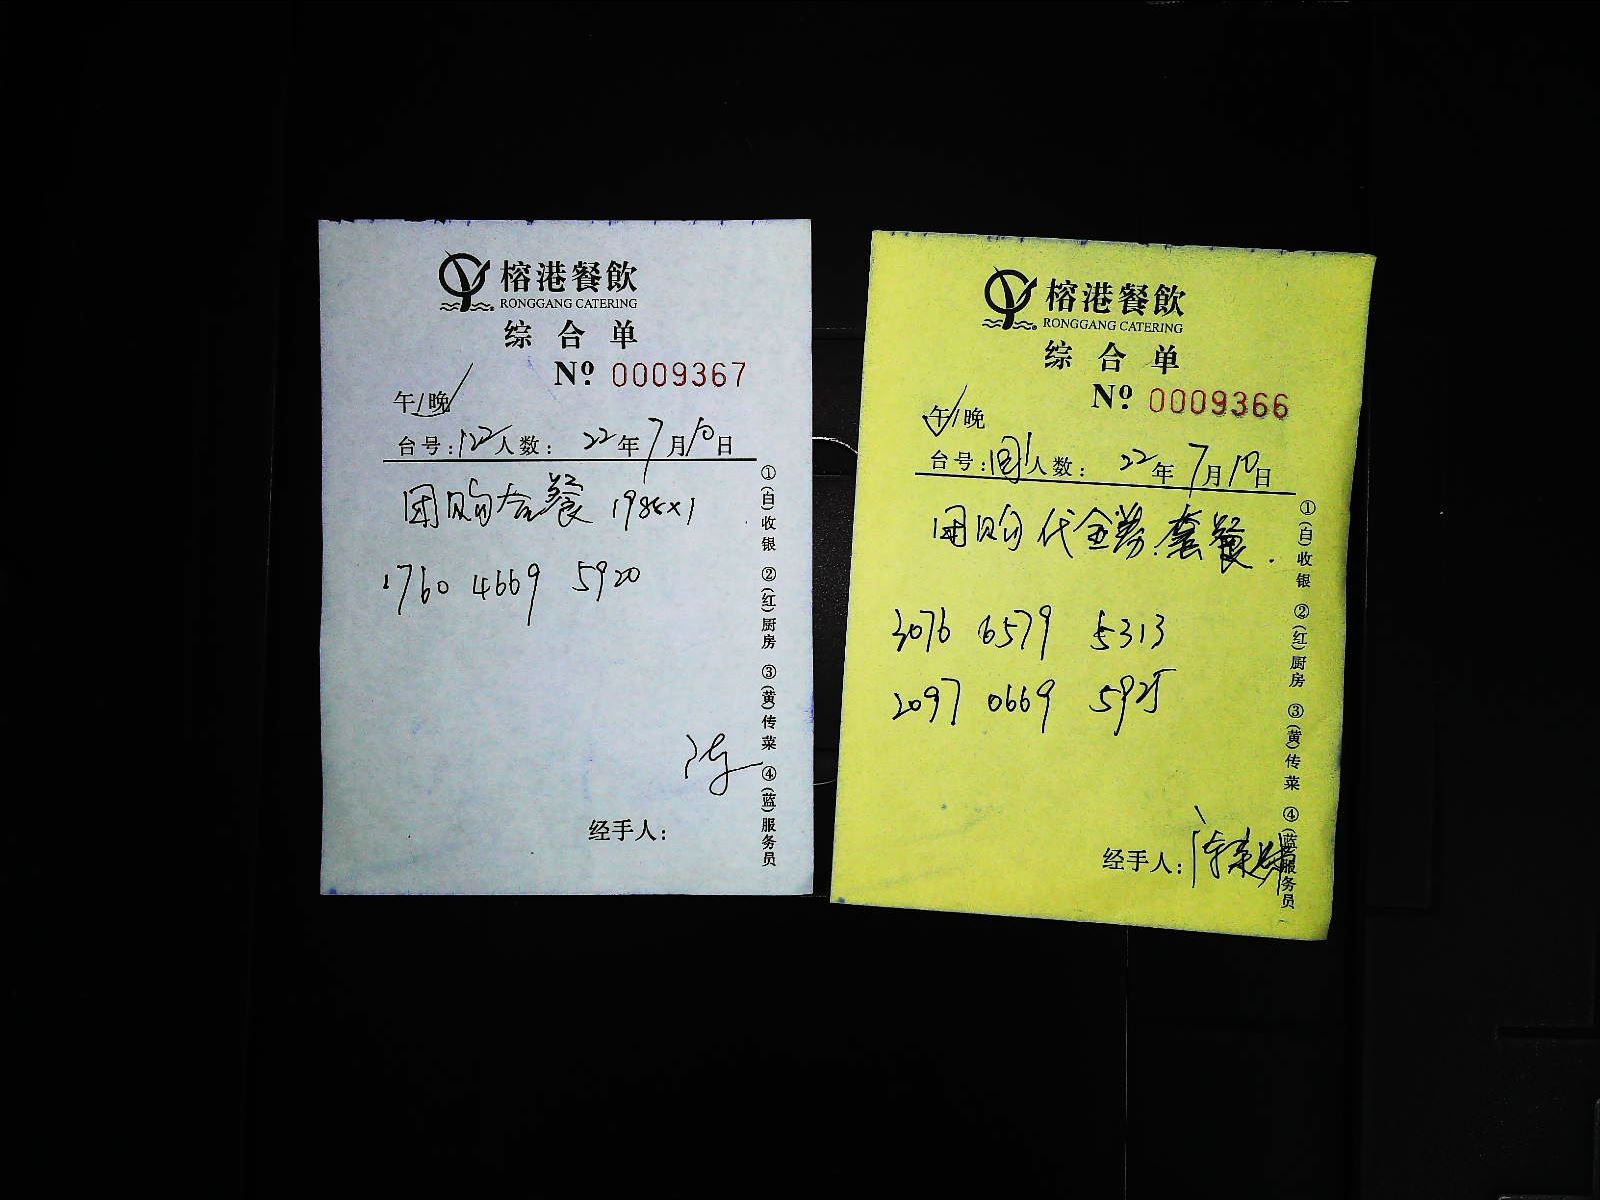 榕港餐飲
RONGGANG CATERING
综合单
Nº 0009367
午/晚
台号: 122 人数: 22年7月10日
团购套餐 198元×1
1760 4669 5920
陈
经手人:
①(白)收银 ②(红)厨房 ③(黄)传菜 ④(蓝)服务员
榕港餐飲
RONGGANG CATERING
综合单
Nº 0009366
午/晚
台号: 人数: 22年7月10日
团购代金券.套餐.
2076 6579 5313
2097 0669 5925
经手人: 陈
①(白)收银 ②(红)厨房 ③(黄)传菜 ④(蓝)服务员